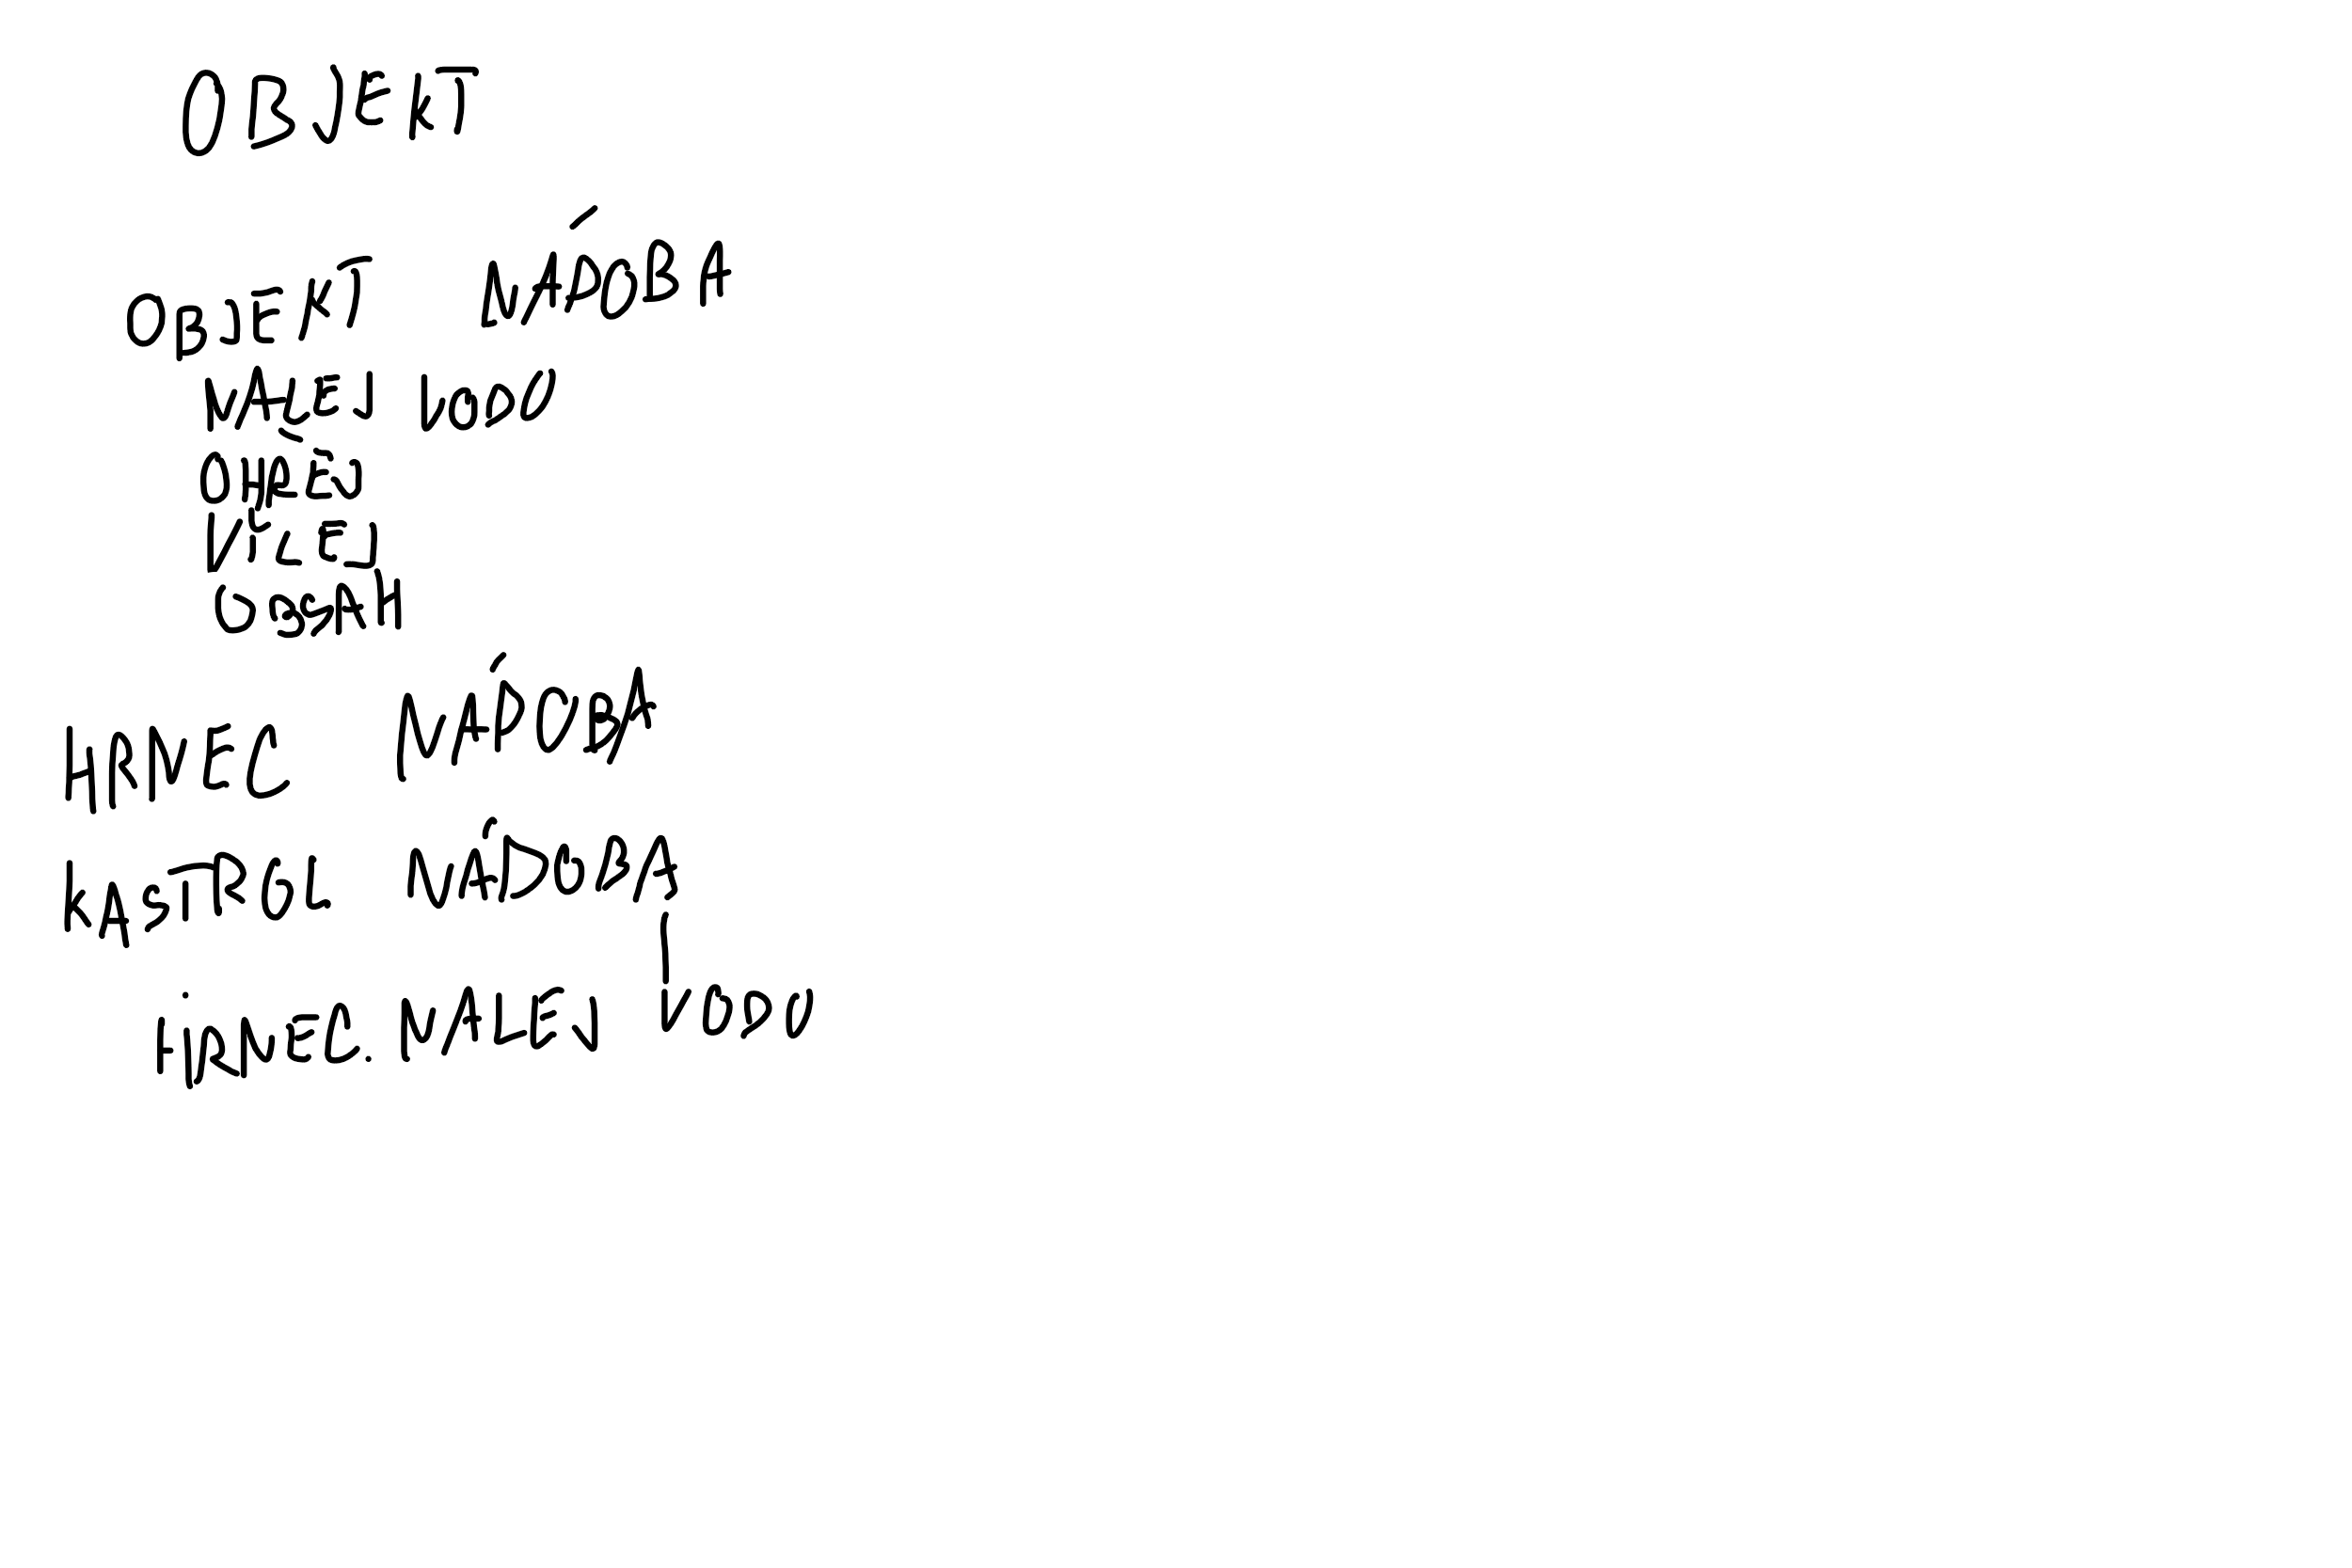 OBJEKT
OBJEKT NÁDOBA
NALEJ VODU
OHŘEJ
VYLEJ
OBSAH
HRNEC NÁDOBA
KASTROL NÁDOBA
HRNEC. NALEJ VODU